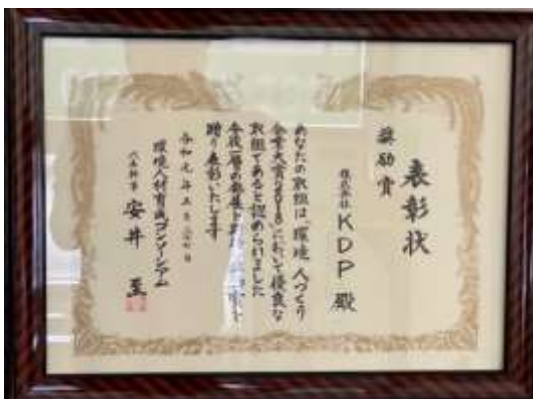 表彰状
奨励賞
株式会社 KDP 殿
あなたの取組は「環境 人づくり
企業大賞2018」において優良な
取組であると認められました
今後一層の発展を
贈り表彰いたします
令和元年五月
環境人材育成コンソーシアム
代表幹事 安井 至